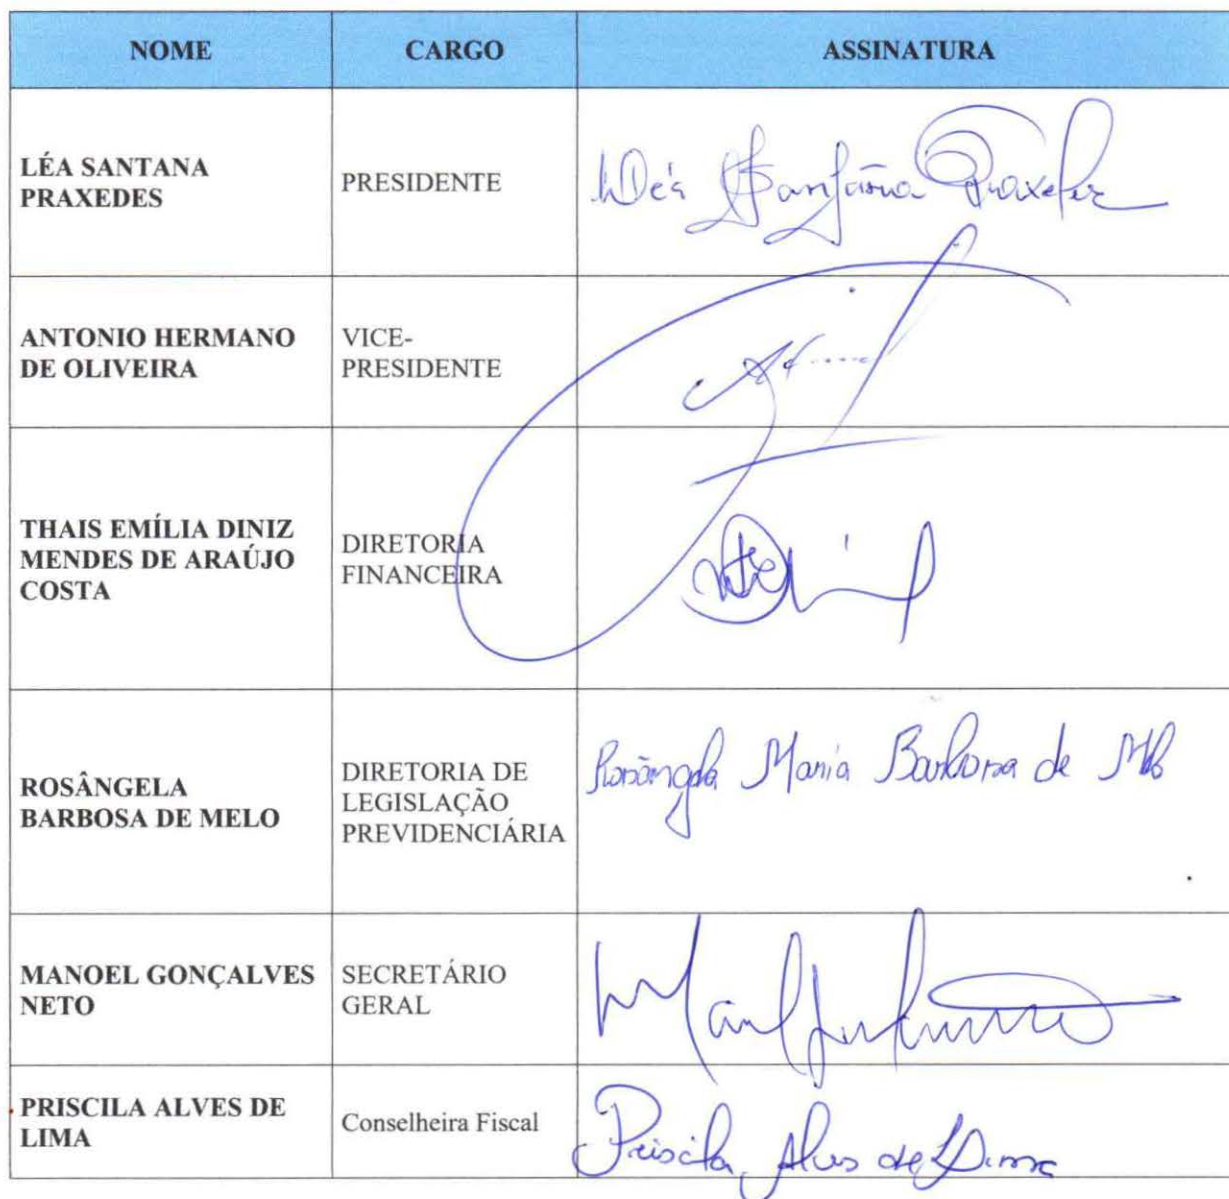 NOME CARGO ASSINATURA
LÉA SANTANA
PRAXEDES
PRESIDENTE
Léa Santana Praxedes
ANTONIO HERMANO
DE OLIVEIRA
VICE-
PRESIDENTE
THAIS EMÍLIA DINIZ
MENDES DE ARAÚJO
COSTA
DIRETORIA
FINANCEIRA
ROSÂNGELA
BARBOSA DE MELO
DIRETORIA DE
LEGISLAÇÃO
PREVIDENCIÁRIA
Rosângela Maria Barbosa de Melo
MANOEL GONÇALVES
NETO
SECRETÁRIO
GERAL
PRISCILA ALVES DE
LIMA
Conselheira Fiscal
Priscila Alves de Lima